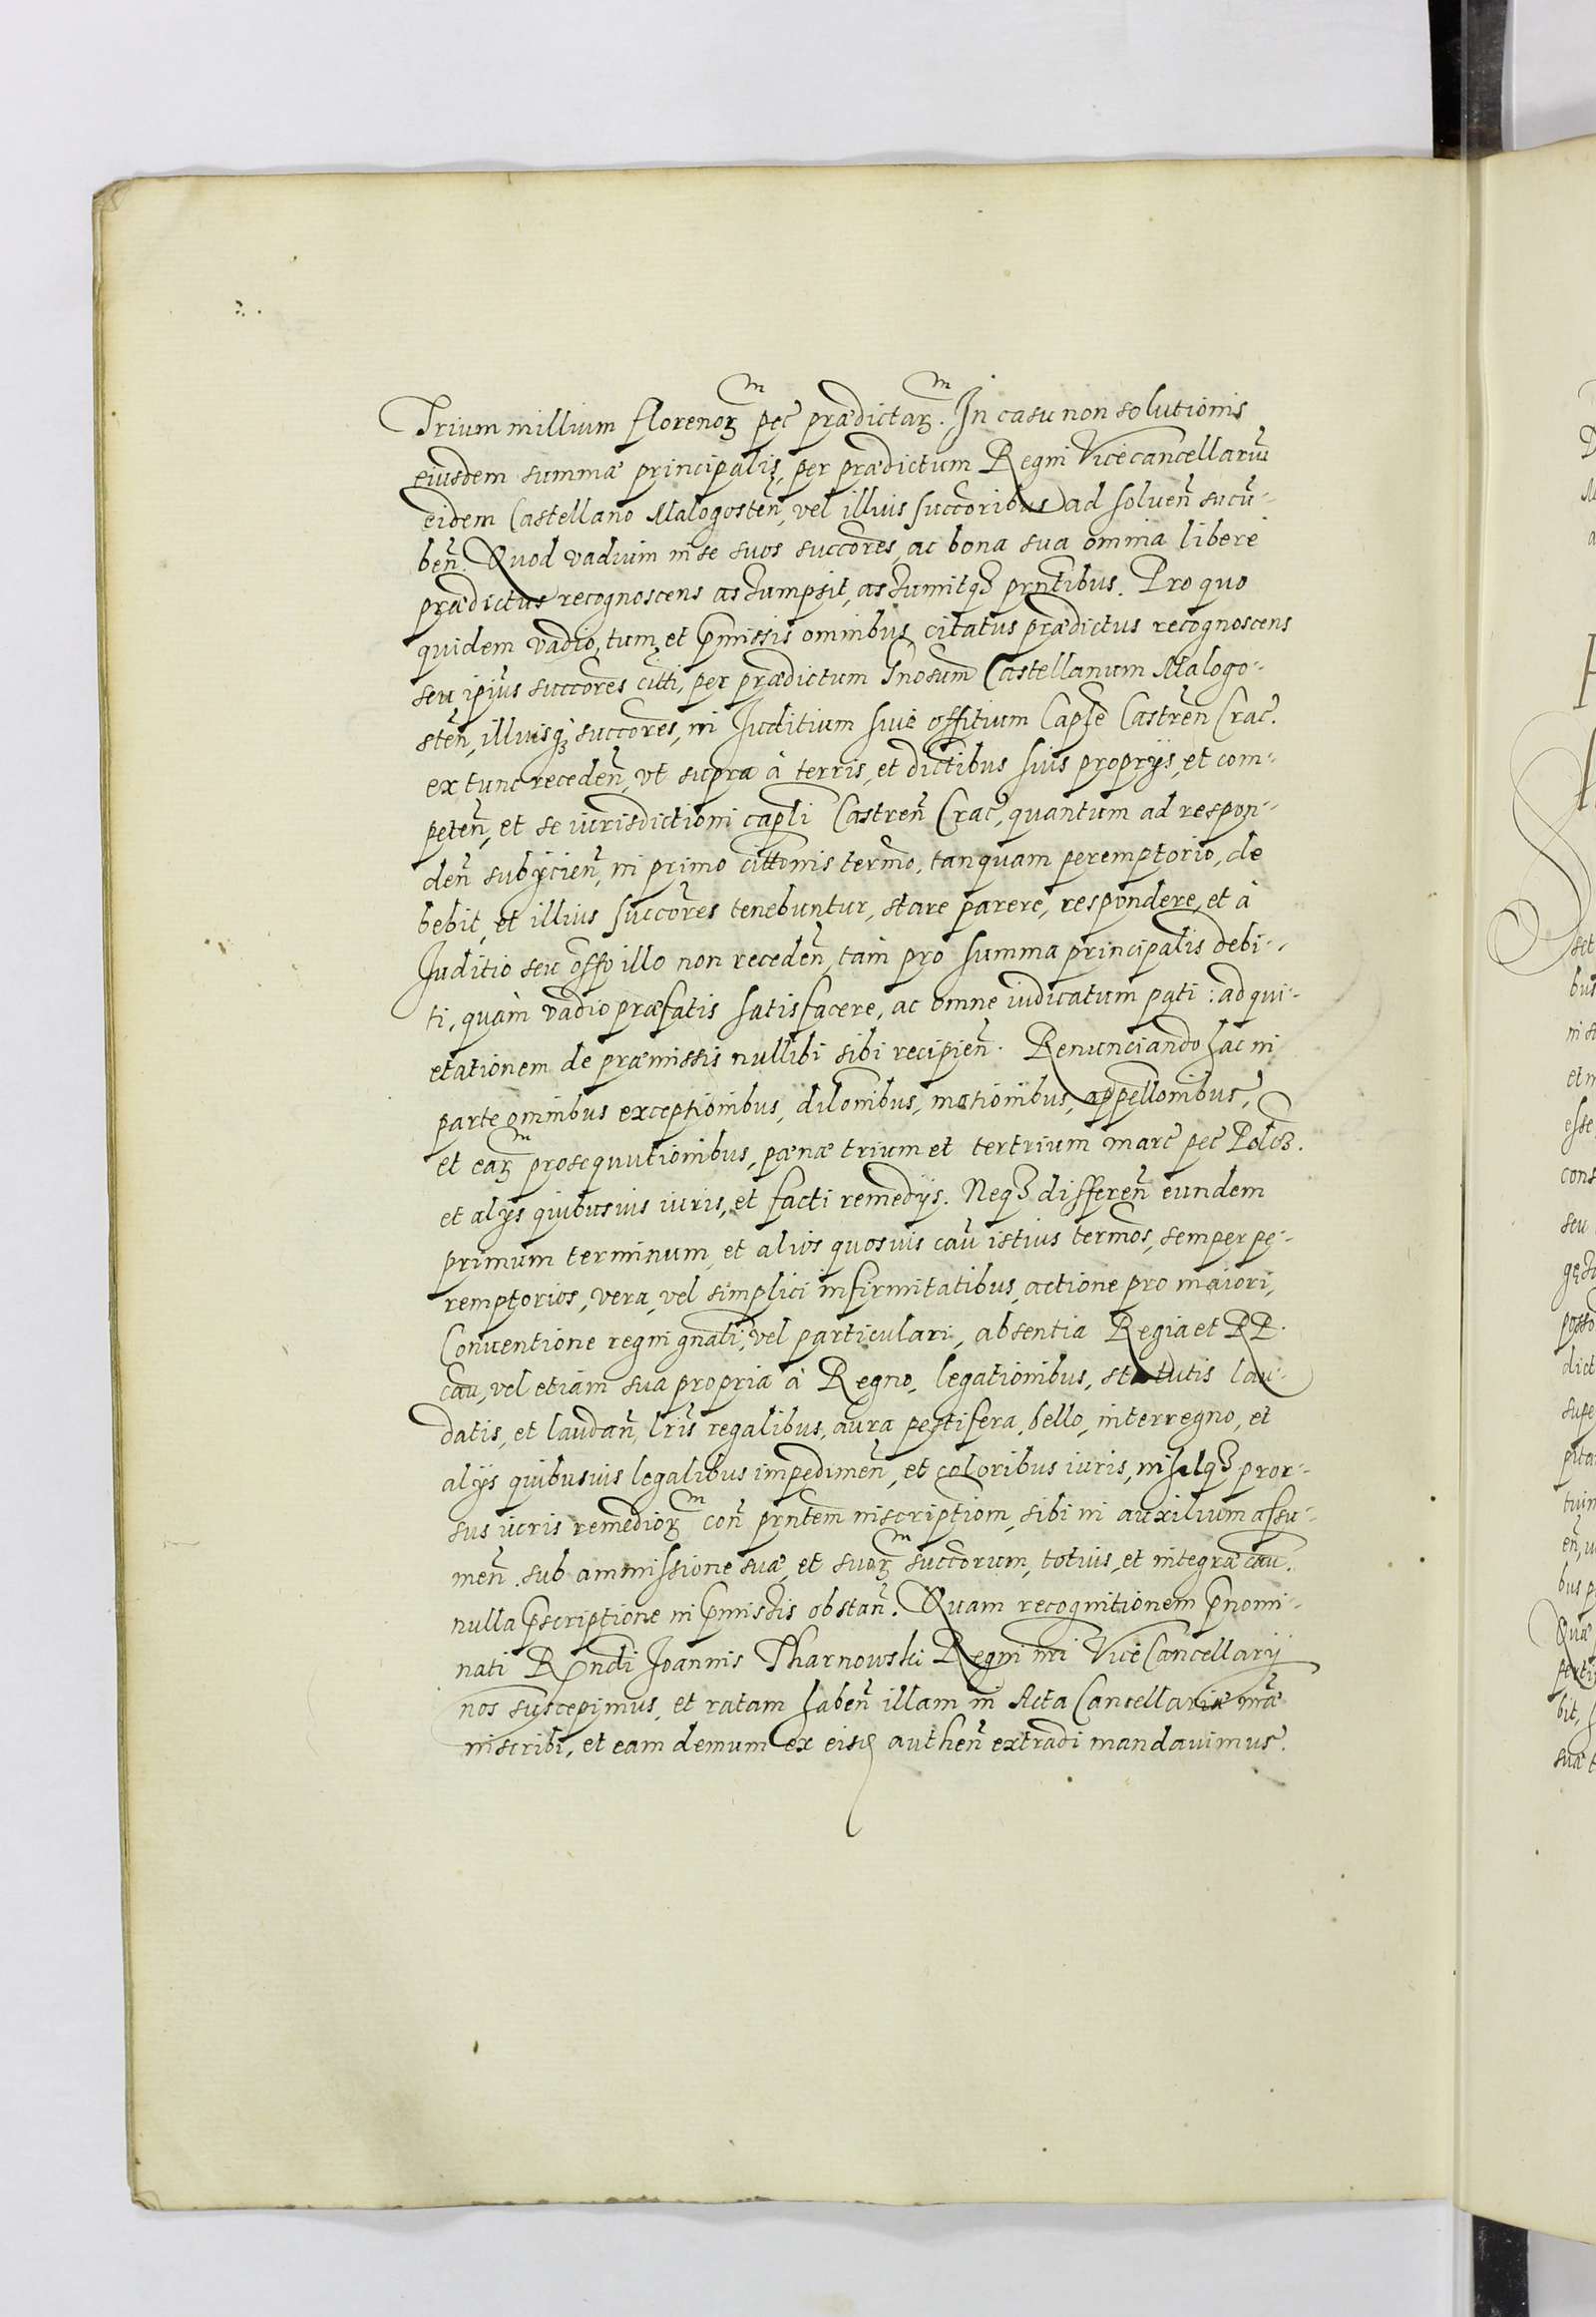 Trium millium florenorꝫ pec̃ prædictarꝫ. In casu non solutionis
eiusdem summæ principalis, per prædictum Regni Vicecancellariũ
eidem Castellano Malogosteñ, vel illius succoribus ad solueñ sucũ-
beñ. Quod vadium in se suos succores, ac bona sua omnia libere
prædictus recognoscens assumpsit, assumitqꝫ prntibus. Pro quo
quidem vadio, tum et p̃missis omnibus citatus prædictus recognoscens
seu ipius succores citti, per prædictum Gnosum Castellanum Malogo-
steñ, illiusqꝫ succores, in Iuditium siue offitium Capłe Castreñ Crac̃.
ex tunc recedeñ, vt supra à terris, et dictibus suis proprijs, et com-
peteñ, et se iurisdictioni capłi Castreñ Crac̃, quantum ad respon-
deñ subijcieñ, in primo cittonis termo, tanquam peremptorio, de
bebit, et illius succores tenebuntur, stare parere, respondere, et à
Iuditio seu offo illo non recedeñ, tam pro summa principalis debi-
ti, quàm vadio præfatis satisfacere, ac omne iudicatum pati: ad qui-
etationem de præmissis nullibi sibi recipieñ. Renunciando hac in
parte omnibus exceptionibus, dilonibus, motionibus, appellonibus,
et earꝫ prosequutionibus, pænæ trium et tertrium marc̃ pec̃ Polcꝫ.
et alijs quibusuis iuris, et facti remedijs. Neqꝫ differeñ eundem
primum terminum, et alios quosuis cau͂ istius termos, semper pe-
remptorios, vera, vel simplici infirmitatibus, actione pro maiori,
Conuentione regni gnali, vel particulari, absentia Regia et RP.
cau, vel etiam sua propria à Regno, legationibus, statutis lau-
datis, et laudañ, lris regalibus, aura pestifera, bello, interregno, et
alijs quibusuis legalibus impedimeñ, et coloribus iuris, nihilqꝫ pror-
sus iuris remediorꝫ coñ prntem inscriptiom, sibi in auxilium assu-
meñ. sub ammissione suæ, et suorꝫ succorum, totius, et integræ cau.
nulla p̃scriptione in p̃missis obstañ. Quam recognitionem p̃nomi-
nati Rndi Joannis Tharnowski Regni nri Vice Cancellarij
nos suscepimus, et ratam habeñ illam in Acta Cancellariæ nræ
inscribi, et eam demum ex eisꝫ autheñ extradi mandauimus.